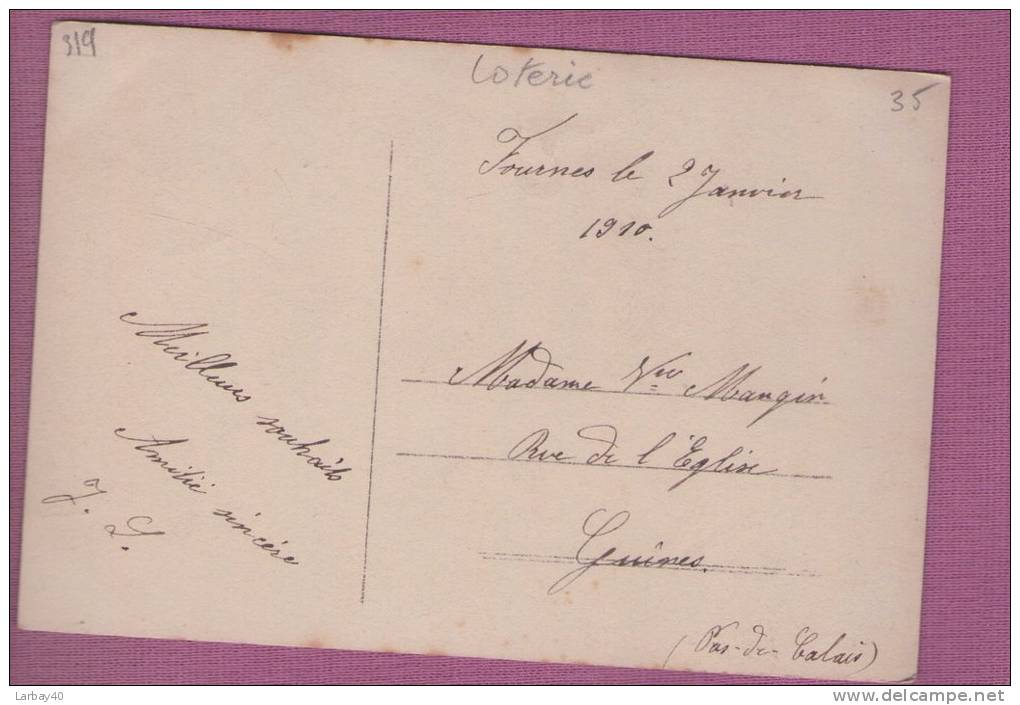 319
Loterie
35
Fournes le 2 Janvier
1910.
Meilleurs souhaits
Amitié sincère
J. L.
Madame Vve Mangin
Rue de l'Eglise
Guînes.
(Pas-de-Calais)
Larbay40
www.delcampe.net